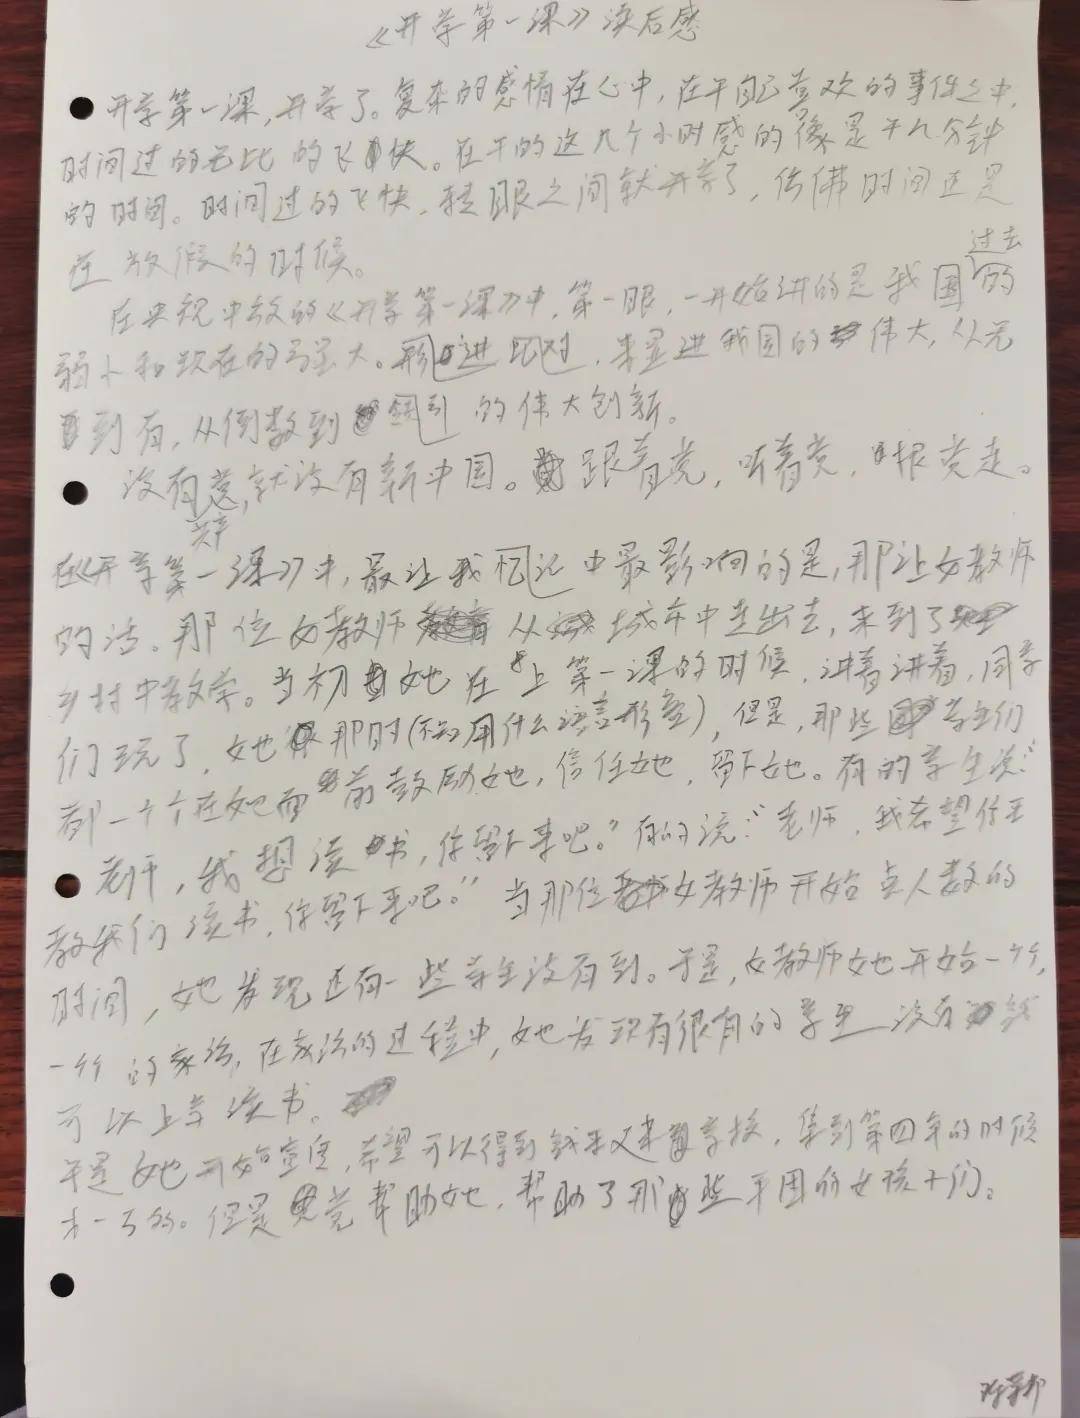 《开学第一课》读后感
开学第一课，开学了。复杂的感情在心中，在干自己喜欢的事件之中，
时间过的无比的飞快。在干的这几个小时感的像是干几分钟
的时间。时间过的飞快，转眼之间就开学了，仿佛时间还是
在放假的时候。
在央视中放的《开学第一课》中，第一眼，一开始讲的是我国过去的
弱小和现在的强大。形进比对，来显进我国的伟大，从无
到有，从倒数到 的伟大创新。
没有共产党，就没有新中国。跟着党，听着党，跟党走。
在《开学第一课》中，最让我 中最影响的是，那让女教师
的话。那位女教师从城市中走出去，来到了
乡村中教学。当初她在上第一课的时候，讲着讲着，同学
们玩了，她那时(不知用什么语言形容)，但是，那些学生们
都一个个在她面前鼓励她，信任她，留下她。有的学生说：“
老师，我想读书，你留下来吧。”有的说：“老师，我希望你来
教我们读书，你留下来吧。”当那位女教师开始点人数的
时间，她发现还有一些学生没有到。于是，女教师她开始一个个，
一个个的家访，在家访的过程中，她发现有很有的学生没有钱
可以上学读书。
于是她开始宣传，希望可以得到钱来 学校，集到第四年的时候
才一万的。但是党帮助她，帮助了那些 困的女孩子们。